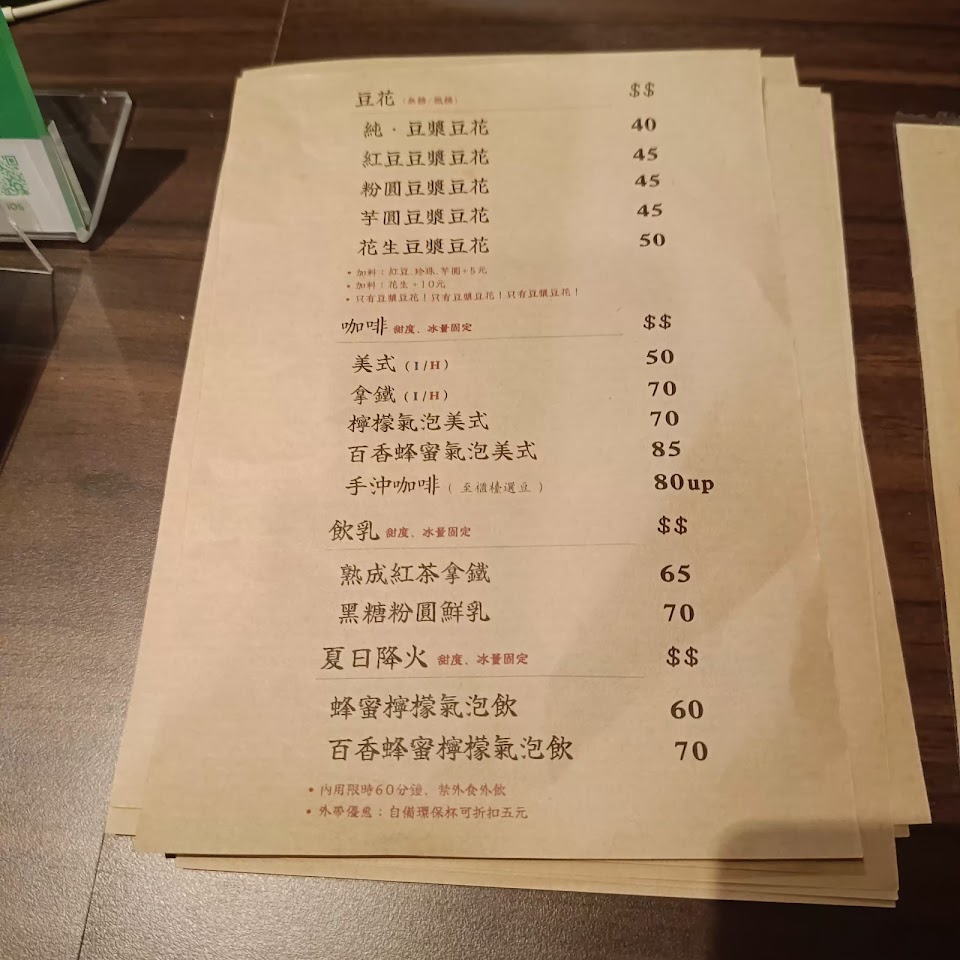 豆花 (無糖/微糖) $$
純・豆漿豆花 40
紅豆豆漿豆花 45
粉圓豆漿豆花 45
芋圓豆漿豆花 45
花生豆漿豆花 50
• 加料：紅豆.珍珠.芋圓+5元
• 加料：花生+10元
• 只有豆漿豆花！只有豆漿豆花！只有豆漿豆花！
咖啡 甜度、冰量固定 $$
美式 (I/H) 50
拿鐵 (I/H) 70
檸檬氣泡美式 70
百香蜂蜜氣泡美式 85
手沖咖啡 ( 至櫃檯選豆 ) 80up
飲乳 甜度、冰量固定 $$
熟成紅茶拿鐵 65
黑糖粉圓鮮乳 70
夏日降火 甜度、冰量固定 $$
蜂蜜檸檬氣泡飲 60
百香蜂蜜檸檬氣泡飲 70
• 內用限時60分鐘、禁外食外飲
• 外帶優惠：自備環保杯可折扣五元
iOS